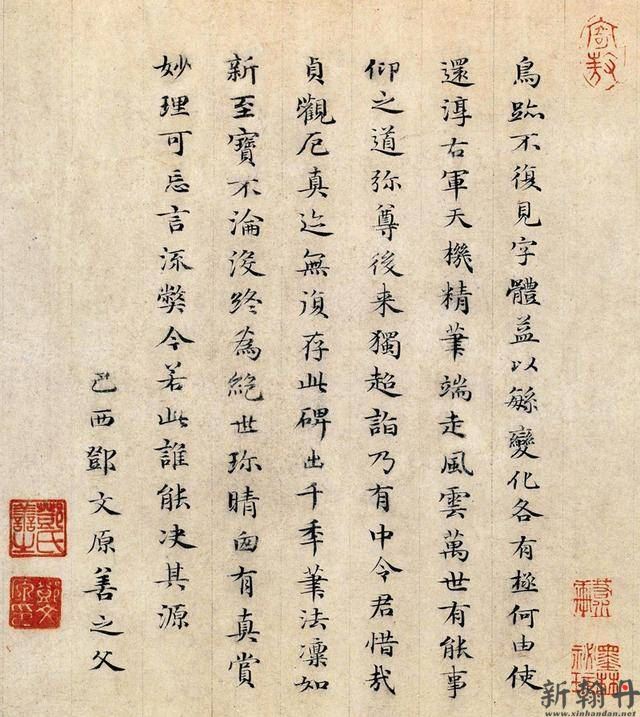 鳥跡不復見字體益以緐變化各有極何由使
還淳右軍天機精筆端走風雲萬世有能事
仰之道弥尊後来獨超詣乃有中令君惜哉
貞觀厄真迹無復存此碑出千年筆法凜如
新至寶不淪没終為絕世珎晴囱有真賞
妙理可忘言流弊今若此誰能决其源
己酉鄧文原善之父
墨林祕玩
鄧氏善之
鄧文原印
新翰丹
www.xinhandan.net